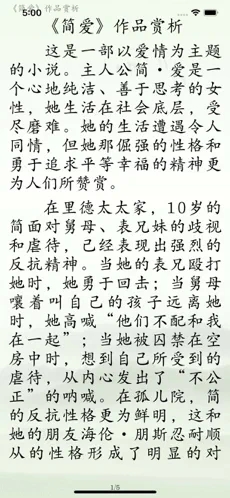 《简爱》作品赏析
5:00
《简爱》作品赏析
这是一部以爱情为主题
的小说。主人公简·爱是一
个心地纯洁、善于思考的女
性，她生活在社会底层，受
尽磨难。她的生活遭遇令人
同情，但她那倔强的性格和
勇于追求平等幸福的精神更
为人们所赞赏。
在里德太太家，10岁的
简面对舅母、表兄妹的歧视
和虐待，已经表现出强烈的
反抗精神。当她的表兄殴打
她时，她勇于回击；当舅母
嚷着叫自己的孩子远离她
时，她高喊“他们不配和我
在一起”；当她被囚禁在空
房中时，想到自己所受到的
虐待，从内心发出了“不公
正”的呐喊。在孤儿院，简
的反抗性格更为鲜明，这和
她的朋友海伦·朋斯忍耐顺
从的性格形成了明显的对
1/5